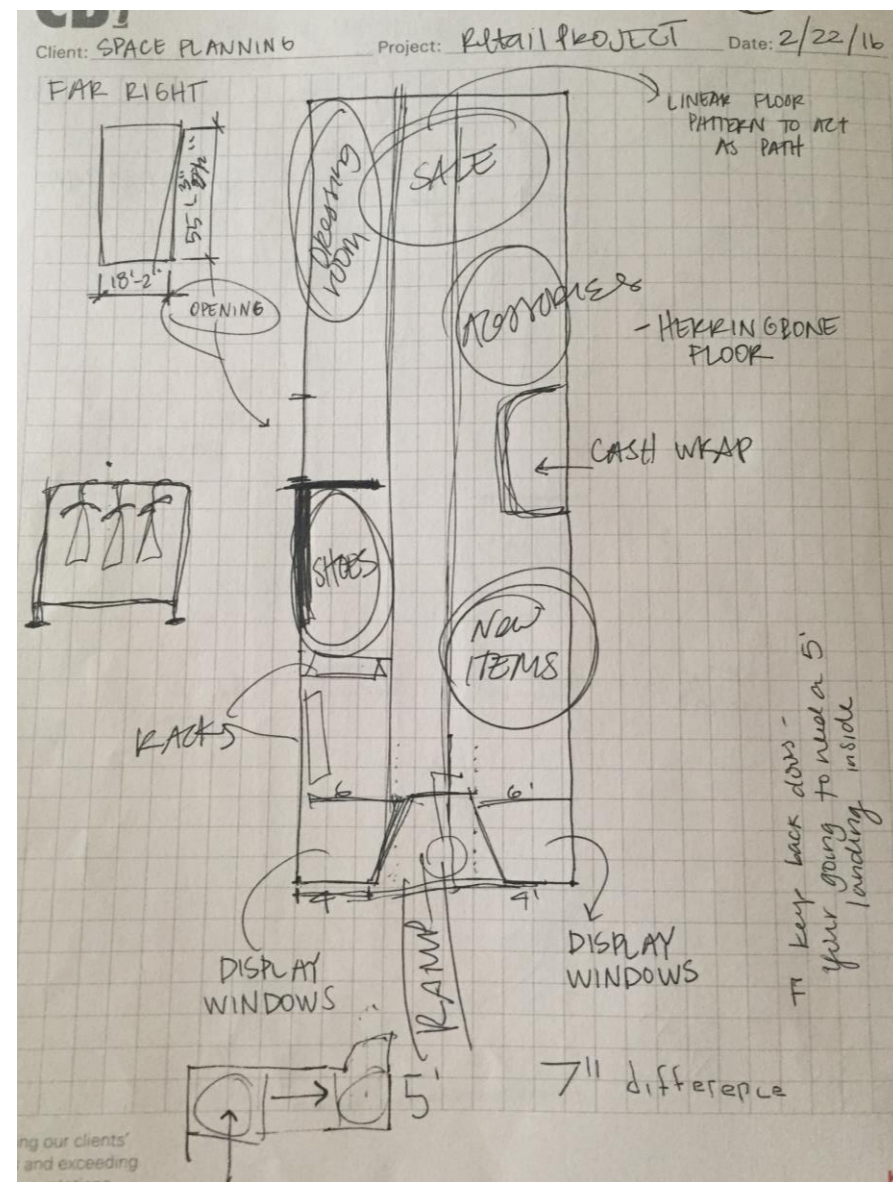 CBT
Client: SPACE PLANNING Project: Retail PROJECT Date: 2/22/16
FAR RIGHT
LINEAR FLOOR
PATTERN TO ACT
AS PATH
SALE
DRESSING
ROOM
18'-2"
OPENING
ACCESSORIES
- HERRINGBONE
FLOOR
CASH WRAP
SHOES
NEW
ITEMS
RACKS
6
6'
4
4'
DISPLAY
WINDOWS
RAMP
DISPLAY
WINDOWS
keep back doors -
your going to need a 5'
landing inside
5'
7" difference
ng our clients'
and exceeding